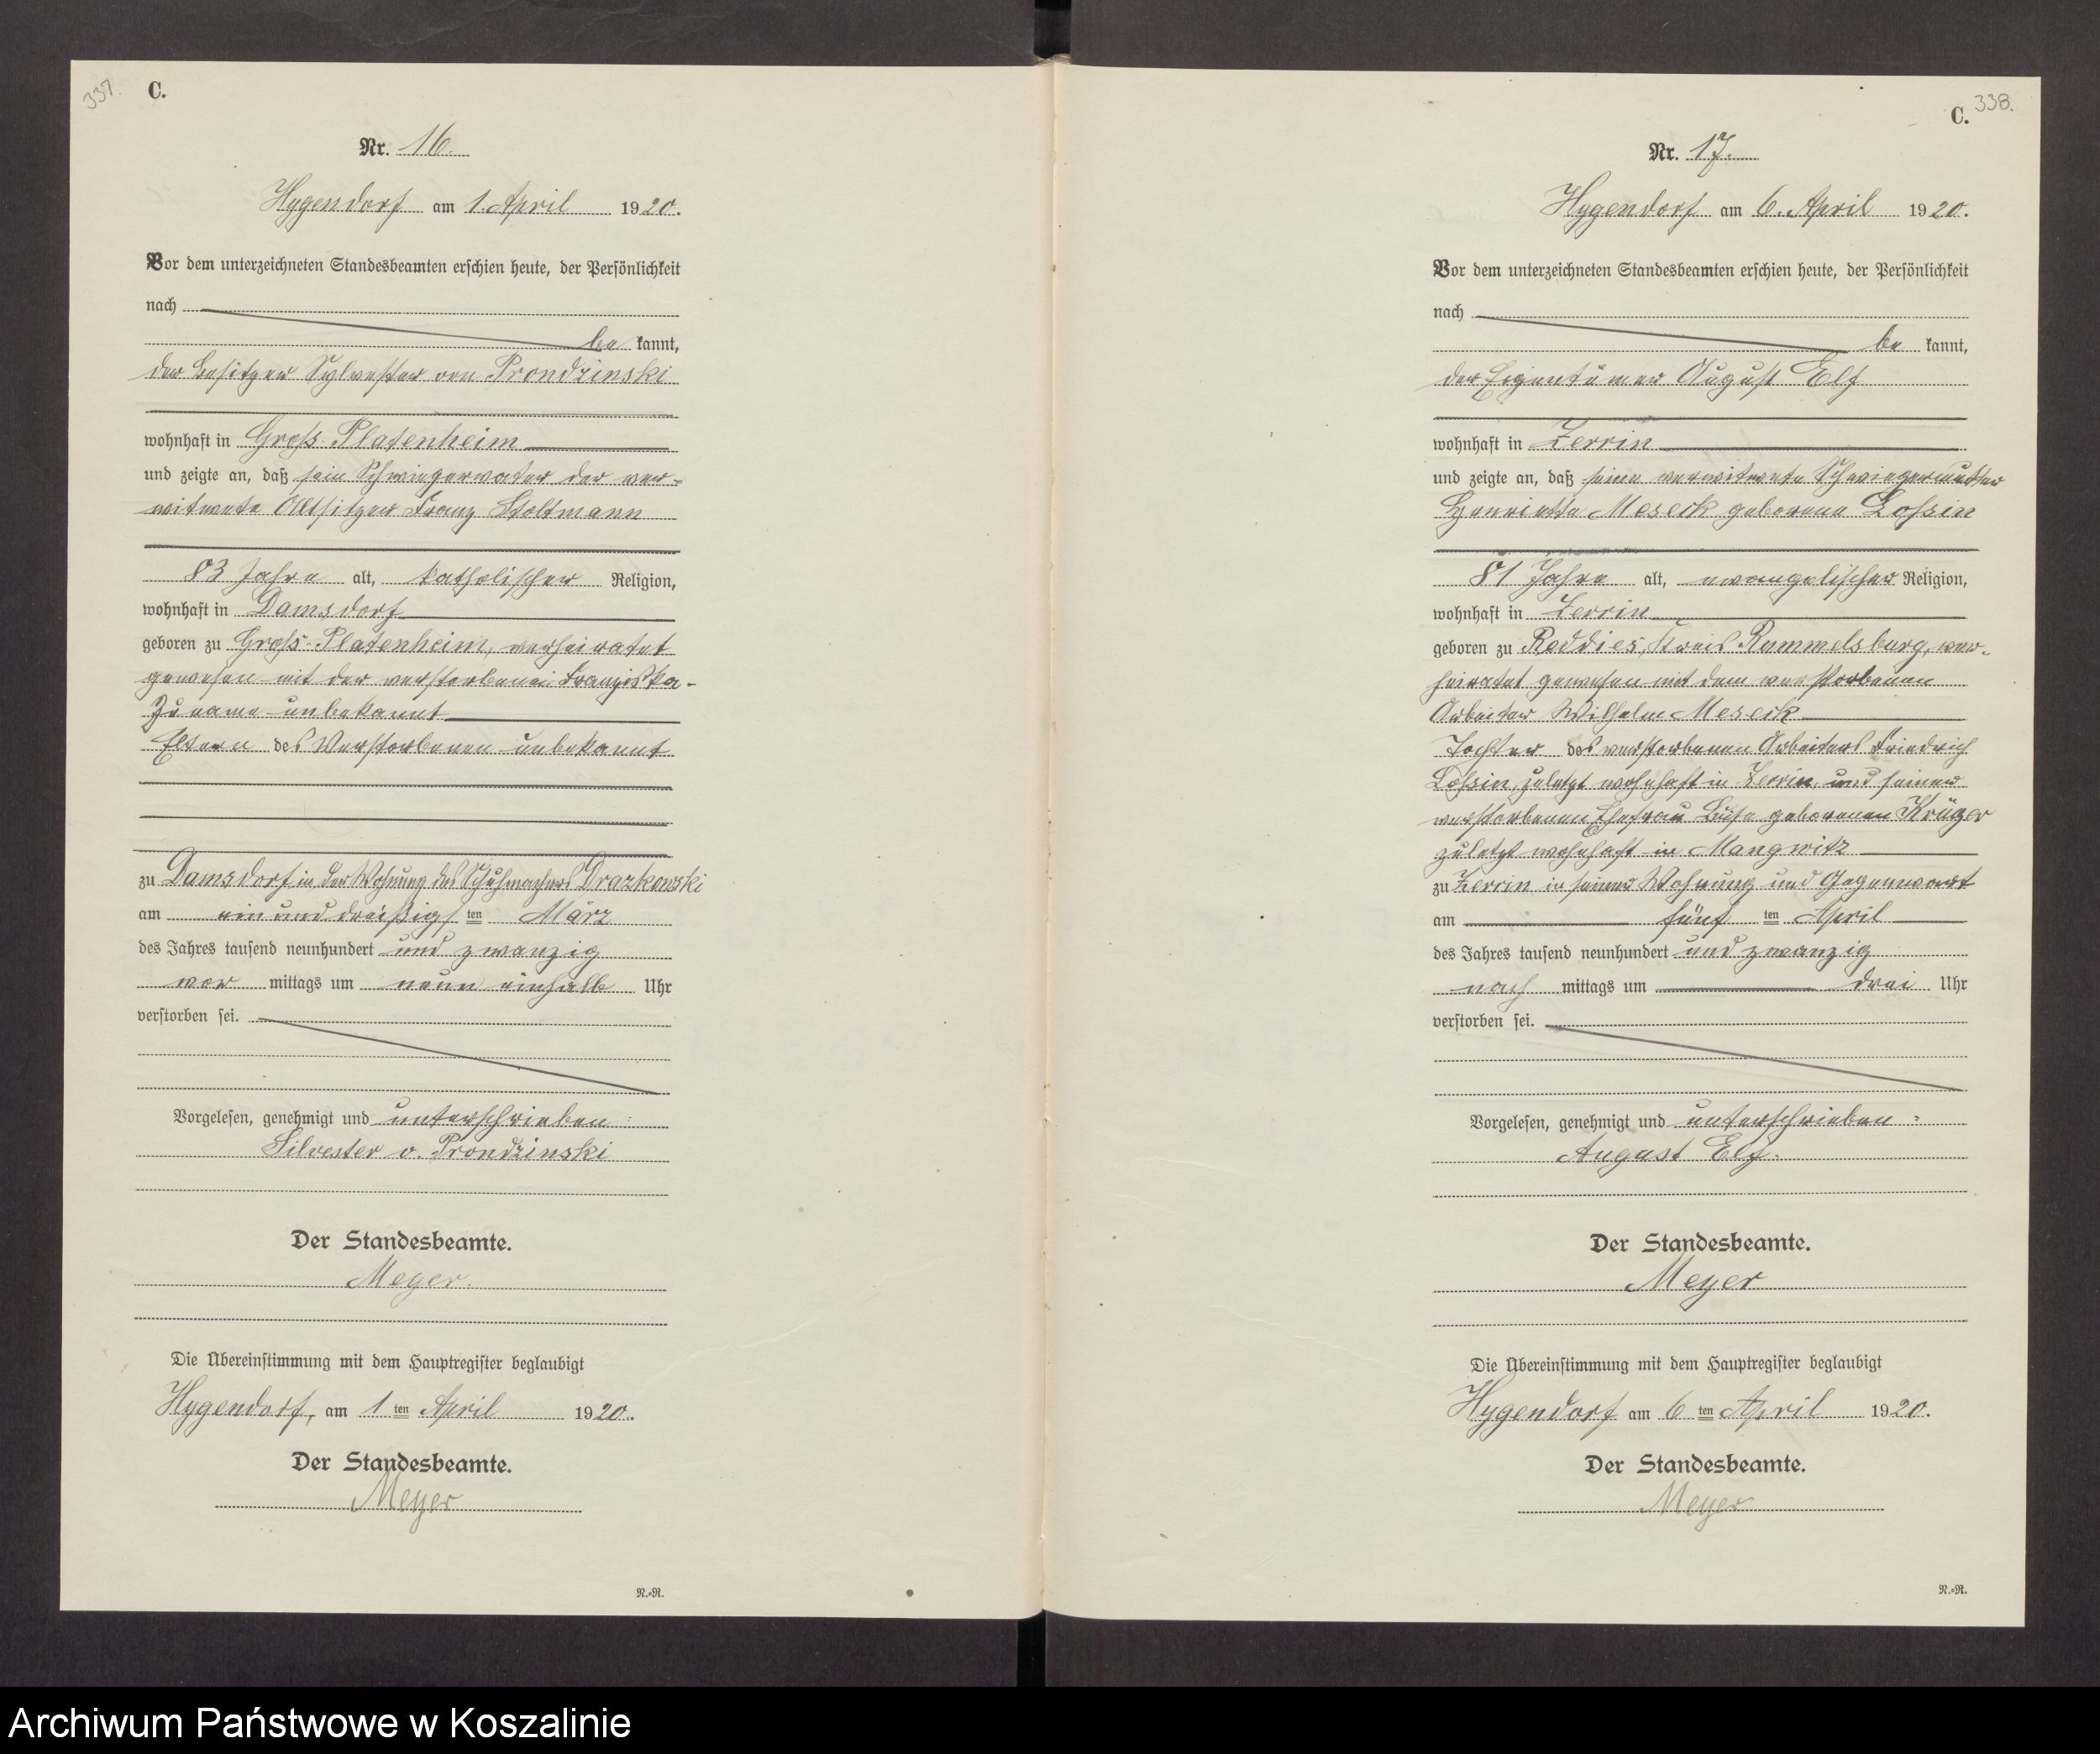 337.
C.
Nr. 16.
Hygendorf am 1. April 1920.
Vor dem unterzeichneten Standesbeamten erschien heute, der Persönlichkeit
nach
be kannt,
der Besitzer Sylvester von Prondzinski
wohnhaft in Groß Platenheim
und zeigte an, daß sein Schwiegervater der ver=
witwete Altsitzer Franz Stoltmann
83 Jahre alt, katholischer Religion,
wohnhaft in Damsdorf
geboren zu Groß-Platenheim, verheiratet
gewesen mit der verstorbenen Franziska -
Zuname unbekannt
Eltern des Verstorbenen unbekannt
zu Damsdorf in der Wohnung des Schuhmachers Drazkowski
am ein und dreißigsten März
des Jahres tausend neunhundert und zwanzig
vor mittags um neun einhalb Uhr
verstorben sei.
Vorgelesen, genehmigt und unterschrieben:
Silvester v. Prondzinski
Der Standesbeamte.
Meyer.
Die Übereinstimmung mit dem Hauptregister beglaubigt
Hygendorf, am 1 ten April 1920.
Der Standesbeamte.
Meyer
N.=R.
338.
C.
Nr. 17.
Hygendorf am 6. April 1920.
Vor dem unterzeichneten Standesbeamten erschien heute, der Persönlichkeit
nach
be kannt,
der Eigentümer August Elf
wohnhaft in Zerrin
und zeigte an, daß seine verwitwete Schwiegermutter
Henriette Meseck geborene Loßin
81 Jahre alt, evangelischer Religion,
wohnhaft in Zerrin
geboren zu Reddies, Kreis Rummelsburg, ver-
heiratet gewesen mit dem verstorbenen
Arbeiter Wilhelm Meseck
Tochter des verstorbenen Arbeiters Friedrich
Loßin, zuletzt wohnhaft in Zerrin, und seiner
verstorbenen Ehefrau Luise geborenen Krüger
zuletzt wohnhaft in Mangwitz
zu Zerrin in seiner Wohnung und Gegenwart
am fünf ten April
des Jahres tausend neunhundert und zwanzig
nach mittags um drei Uhr
verstorben sei.
Vorgelesen, genehmigt und unterschrieben:
August Elf.
Der Standesbeamte.
Meyer
Die Übereinstimmung mit dem Hauptregister beglaubigt
Hygendorf am 6 ten April 1920.
Der Standesbeamte.
Meyer
N.=R.
Archiwum Państwowe w Koszalinie